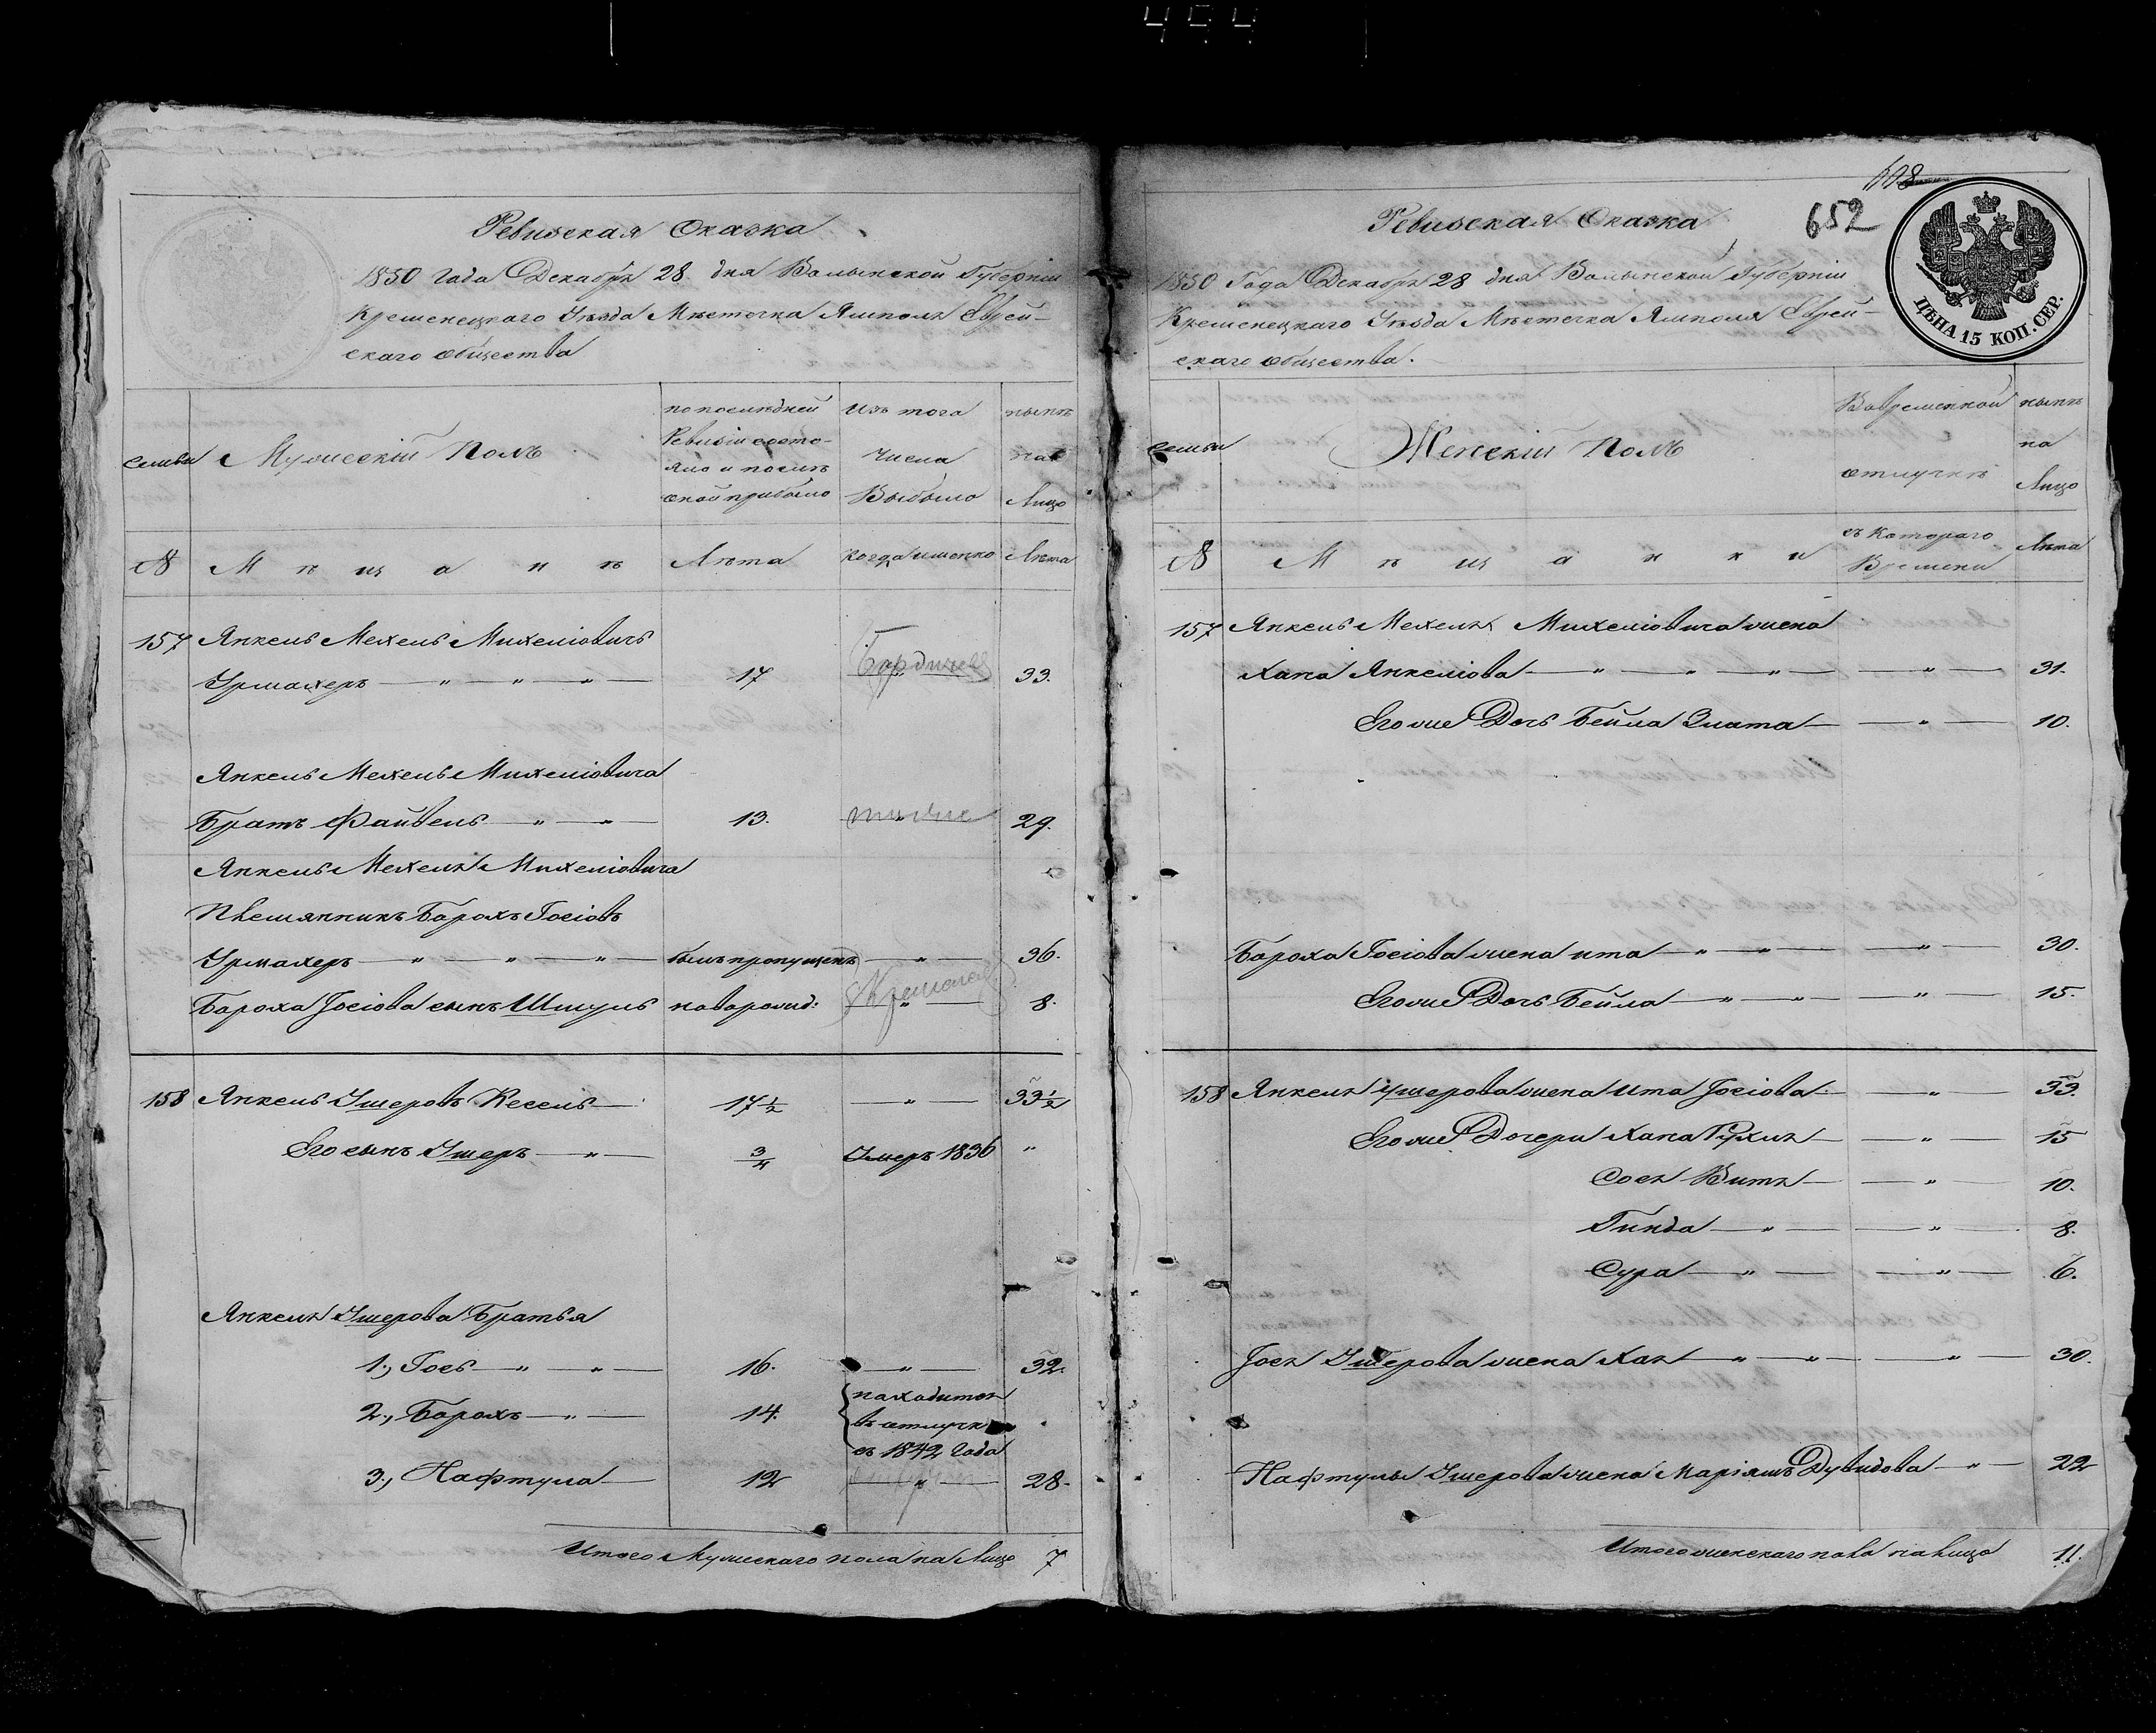 Ревизская Сказка
1850 года Декабря 28 дня Волынской Губерніи
Кременецкаго Уѣзда Мѣстечка Ямполя Еврей-
скаго общества
семьи
Мужескій Полъ
по послѣдней
Ревизіи состо-
яло и послѣ
оной прибыло
Изъ того
Числа
Выбыло
нынѣ
на
Лицо
№
М ѣ щ а н ѣ
Лѣта
Когда именно
Лѣта
157 Янкель Мехель Михеліовичъ
Урмахеръ — „ — „ — „ — 17 Бердичев 33.
Янкель Мехель Михеліовича
Братъ Файвель — „ — „ — 13. 29.
Янкель Мехеля Михеліовича
Племянникъ Борохъ Іосіовъ
Урмахеръ — „ — „ — „ — былъ пропущенъ — „ — 36.
Бороха Іосіова сынъ Шмуль новорожд: Кременец — „ — 8.
158 Янкель Ушеровъ Кесель — 17 1/2 — „ — 33 1/2
Его сынъ Ушеръ — „ — 3/4 Умеръ 1836 „
Янкеля Ушерова Братья
1., Іось — „ — „ — 16. — „ — 32.
2., Борохъ — „ — 14. находится
въ отлучкѣ
съ 1842 года
3., Нафтула — 12 — „ — 28.
Итого Мужескаго пола на Лицо 7
608
652
ЦѢНА 15 КОП. СЕР.
Ревизская Сказка
1850 Года Декабря 28 дня Волынской Губерніи
Кременецкаго Уѣзда Мѣстечка Ямполя Еврей-
скаго общества.
Семьи
Женскій Полъ
Вовременной
отлучкѣ
нынѣ
на
Лицо
№
М ѣ щ а н к и
съ Котораго
Времени
Лѣта
157 Янкель Мехеля Михеліовича жена
Хана Янкеліова — „ — „ — „ — — „ — 31.
Его же Дочь Бейла Злата — — „ — 10.
Бороха Іосіова жена Ита — „ — „ — — „ — 30.
Его же Дочь Бейла — „ — „ — — „ — 15.
158 Янкеля Ушерова жена Ита Іосіова — — „ — 33.
Его же Дочери Хана Рухля — — „ — 15
Сося Витя — — „ — 10.
Гинда — „ — — „ — 8.
Сура — „ — — „ — 6.
Іося Ушерова жена Хая — „ — „ — — „ — 30.
Нафтулы Ушерова жена Маріямъ Дувидова — „ — 22
Итого женскаго пола на лицо 11.